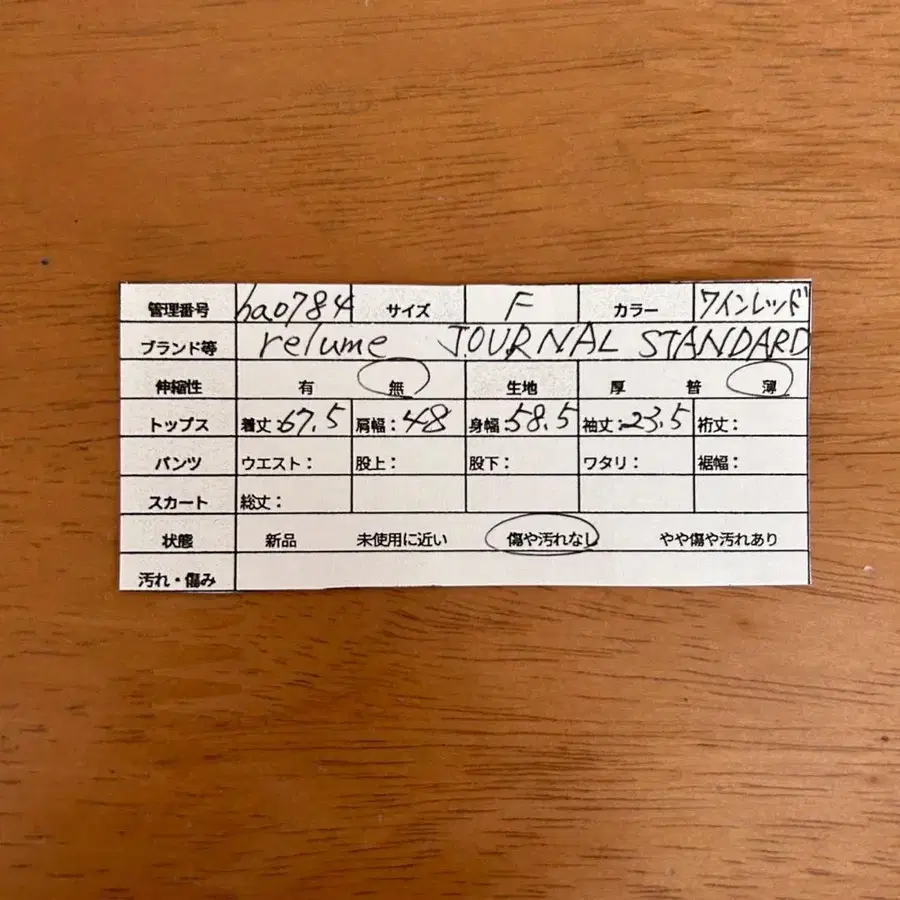 管理番号 ha0784 サイズ F カラー ワインレッド
ブランド等 relume JOURNAL STANDARD
伸縮性 有 無 生地 厚 普 薄
トップス 着丈:67.5 肩幅:48 身幅:58.5 袖丈:23.5 裄丈:
パンツ ウエスト: 股上: 股下: ワタリ: 裾幅:
スカート 総丈:
状態 新品 未使用に近い 傷や汚れなし やや傷や汚れあり
汚れ・傷み